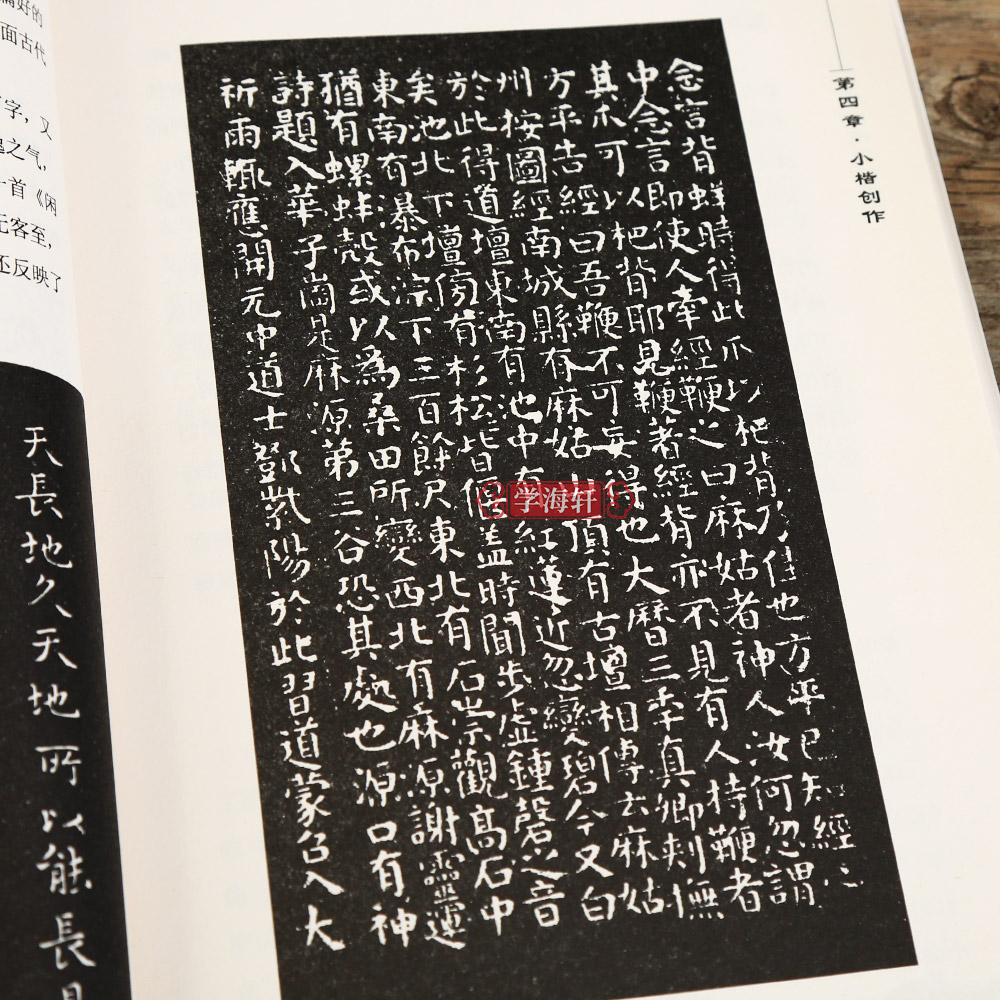 第四章·小楷创作
念言背蛘時得此爪以杷背乃佳也方平已知經心
中念言即使人牽經鞭之曰麻姑者神人汝何忽謂
其爪可以杷背耶見鞭著經背亦不見有人持鞭者
方平告經曰吾鞭不可妄得也大曆三年真卿刺撫
州桉圖經南城縣有麻姑山頂有古壇相傳云麻姑
於此得道壇東南有池中有紅蓮近忽變碧今又白
矣池北下壇傍有杉松皆偃盖時聞步虛鍾磬之音
東南有瀑布淙下三百餘尺東北有石崇觀高石中
猶有螺蚌殼或以為桑田所變西北有麻源謝靈運
詩題入華子崗是麻源第三谷恐其處也源口有神
祈雨輒應開元中道士鄧紫陽於此習道蒙召入大
学海轩
好的
面古代
字，又
之气，
首《闲
无客至，
还反映了
天長地久天地所以能長